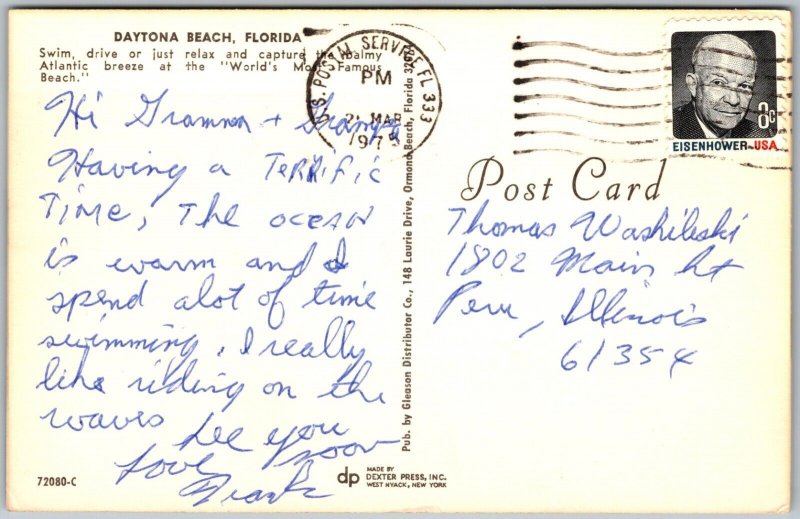 DAYTONA BEACH, FLORIDA
Swim, drive or just relax and capture the balmy
Atlantic breeze at the "World's Most Famous
Beach."
Hi Gramma + Gramps
Having a Terrific
Time, The ocean
is warm and I
spend alot of time
swimming, I really
like riding on the
waves See you
soon
Love
Frank
72080-C
Pub. by Gleason Distributor Co., 148 Laurie Drive, Ormond Beach, Florida 32074
dp MADE BY
DEXTER PRESS, INC.
WEST NYACK, NEW YORK
U.S. POSTAL SERVICE FL 333
PM
MAR
197
8c
EISENHOWER·USA
Post Card
Thomas Washileski
1802 Main St
Peru, Illinois
61354